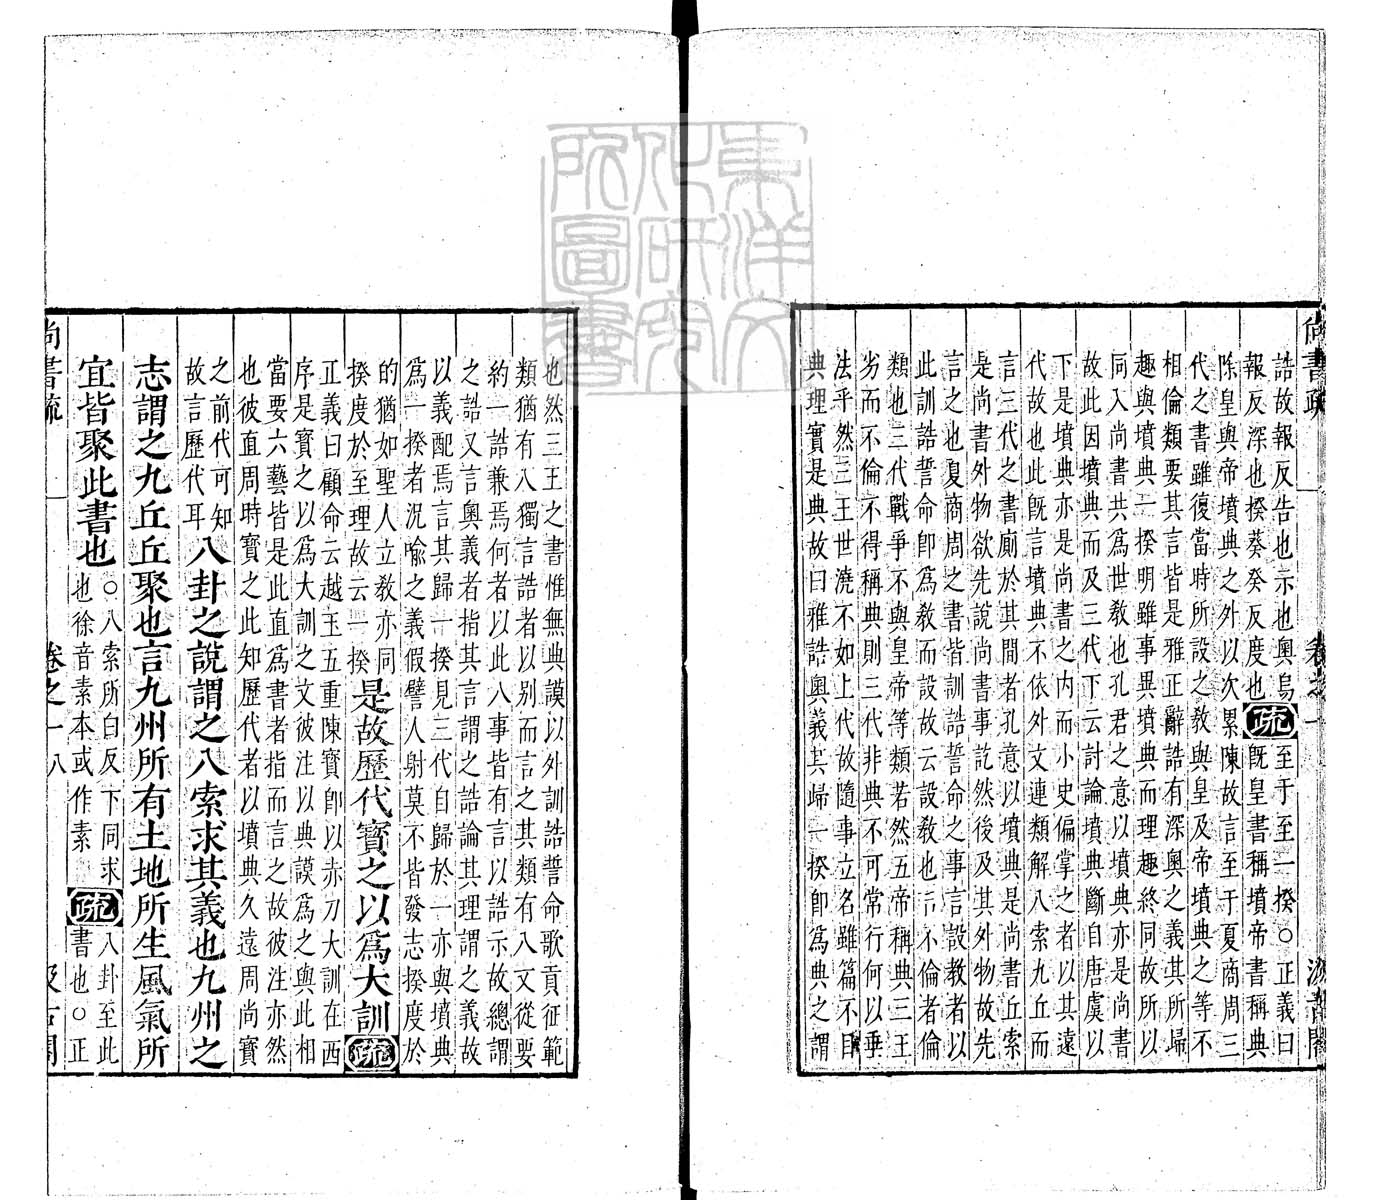 尚書疏 卷之一 汲古閣
誥故報反告也示也奧烏
報反深也揆葵癸反度也疏至于至一揆○正義曰
既皇書稱墳帝書稱典
除皇與帝墳典之外以次累陳故言至于夏商周三
代之書雖復當時所設之教與皇及帝墳典之等不
相倫類要其言皆是雅正辭誥有深奧之義其所歸
趣與墳典一揆明雖事異墳典而理趣終同故所以
同入尚書共為世教也孔君之意以墳典亦是尚書
故此因墳典而及三代下云討論墳典斷自唐虞以
下是墳典亦是尚書之內而小史偏掌之者以其遠
代故也此既言墳典不依外文連類解八索九丘而
言三代之書廁於其間者孔意以墳典是尚書丘索
是尚書外物欲先說尚書事訖然後及其外物故先
言之也夏商周之書皆訓誥誓命之事言設教者以
此訓誥誓命即為教而設故云設教也言不倫者倫
類也三代戰爭不與皇帝等類若然五帝稱典三王
劣而不倫不得稱典則三代非典不可常行何以垂
法乎然三王世澆不如上代故隨事立名雖篇不目
典理實是典故曰雅誥奧義其歸一揆即為典之謂
也然三王之書惟無典謨以外訓誥誓命歌貢征範
類猶有八獨言誥者以別而言之其類有八文從要
約一誥兼焉何者以此八事皆有言以誥示故總謂
之誥又言奧義者指其言謂之誥論其理謂之義故
以義配焉言其歸一揆見三代自歸於一亦與墳典
為一揆者況喻之義假譬人射莫不皆發志揆度於
的猶如聖人立教亦同
揆度於至理故云一揆是故歷代寶之以為大訓疏
正義曰顧命云越玉五重陳寶即以赤刀大訓在西
序是寶之以為大訓之文彼注以典謨為之與此相
當要六藝皆是此直為書者指而言之故彼注亦然
也彼直周時寶之此知歷代者以墳典久遠周尚寶
之前代可知
故言歷代耳八卦之說謂之八索求其義也九州之
志謂之九丘丘聚也言九州所有土地所生風氣所
宜皆聚此書也○八索所白反下同求
也徐音素本或作素疏八卦至此
書也○正
尚書疏 卷之一 八 汲古閣
東洋文
化研究
所圖書